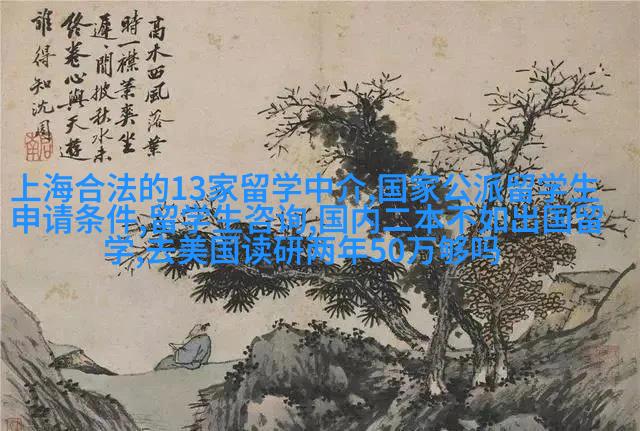 高木西風落葉
時一襟蕭爽坐
遲〻閒披秋水未
終卷心與天遊
誰得知沈周
上海合法的13家留学中介,国家公派留学生
申请条件,留学生咨询,国内二本不如出国留
学,去美国读研两年50万够吗